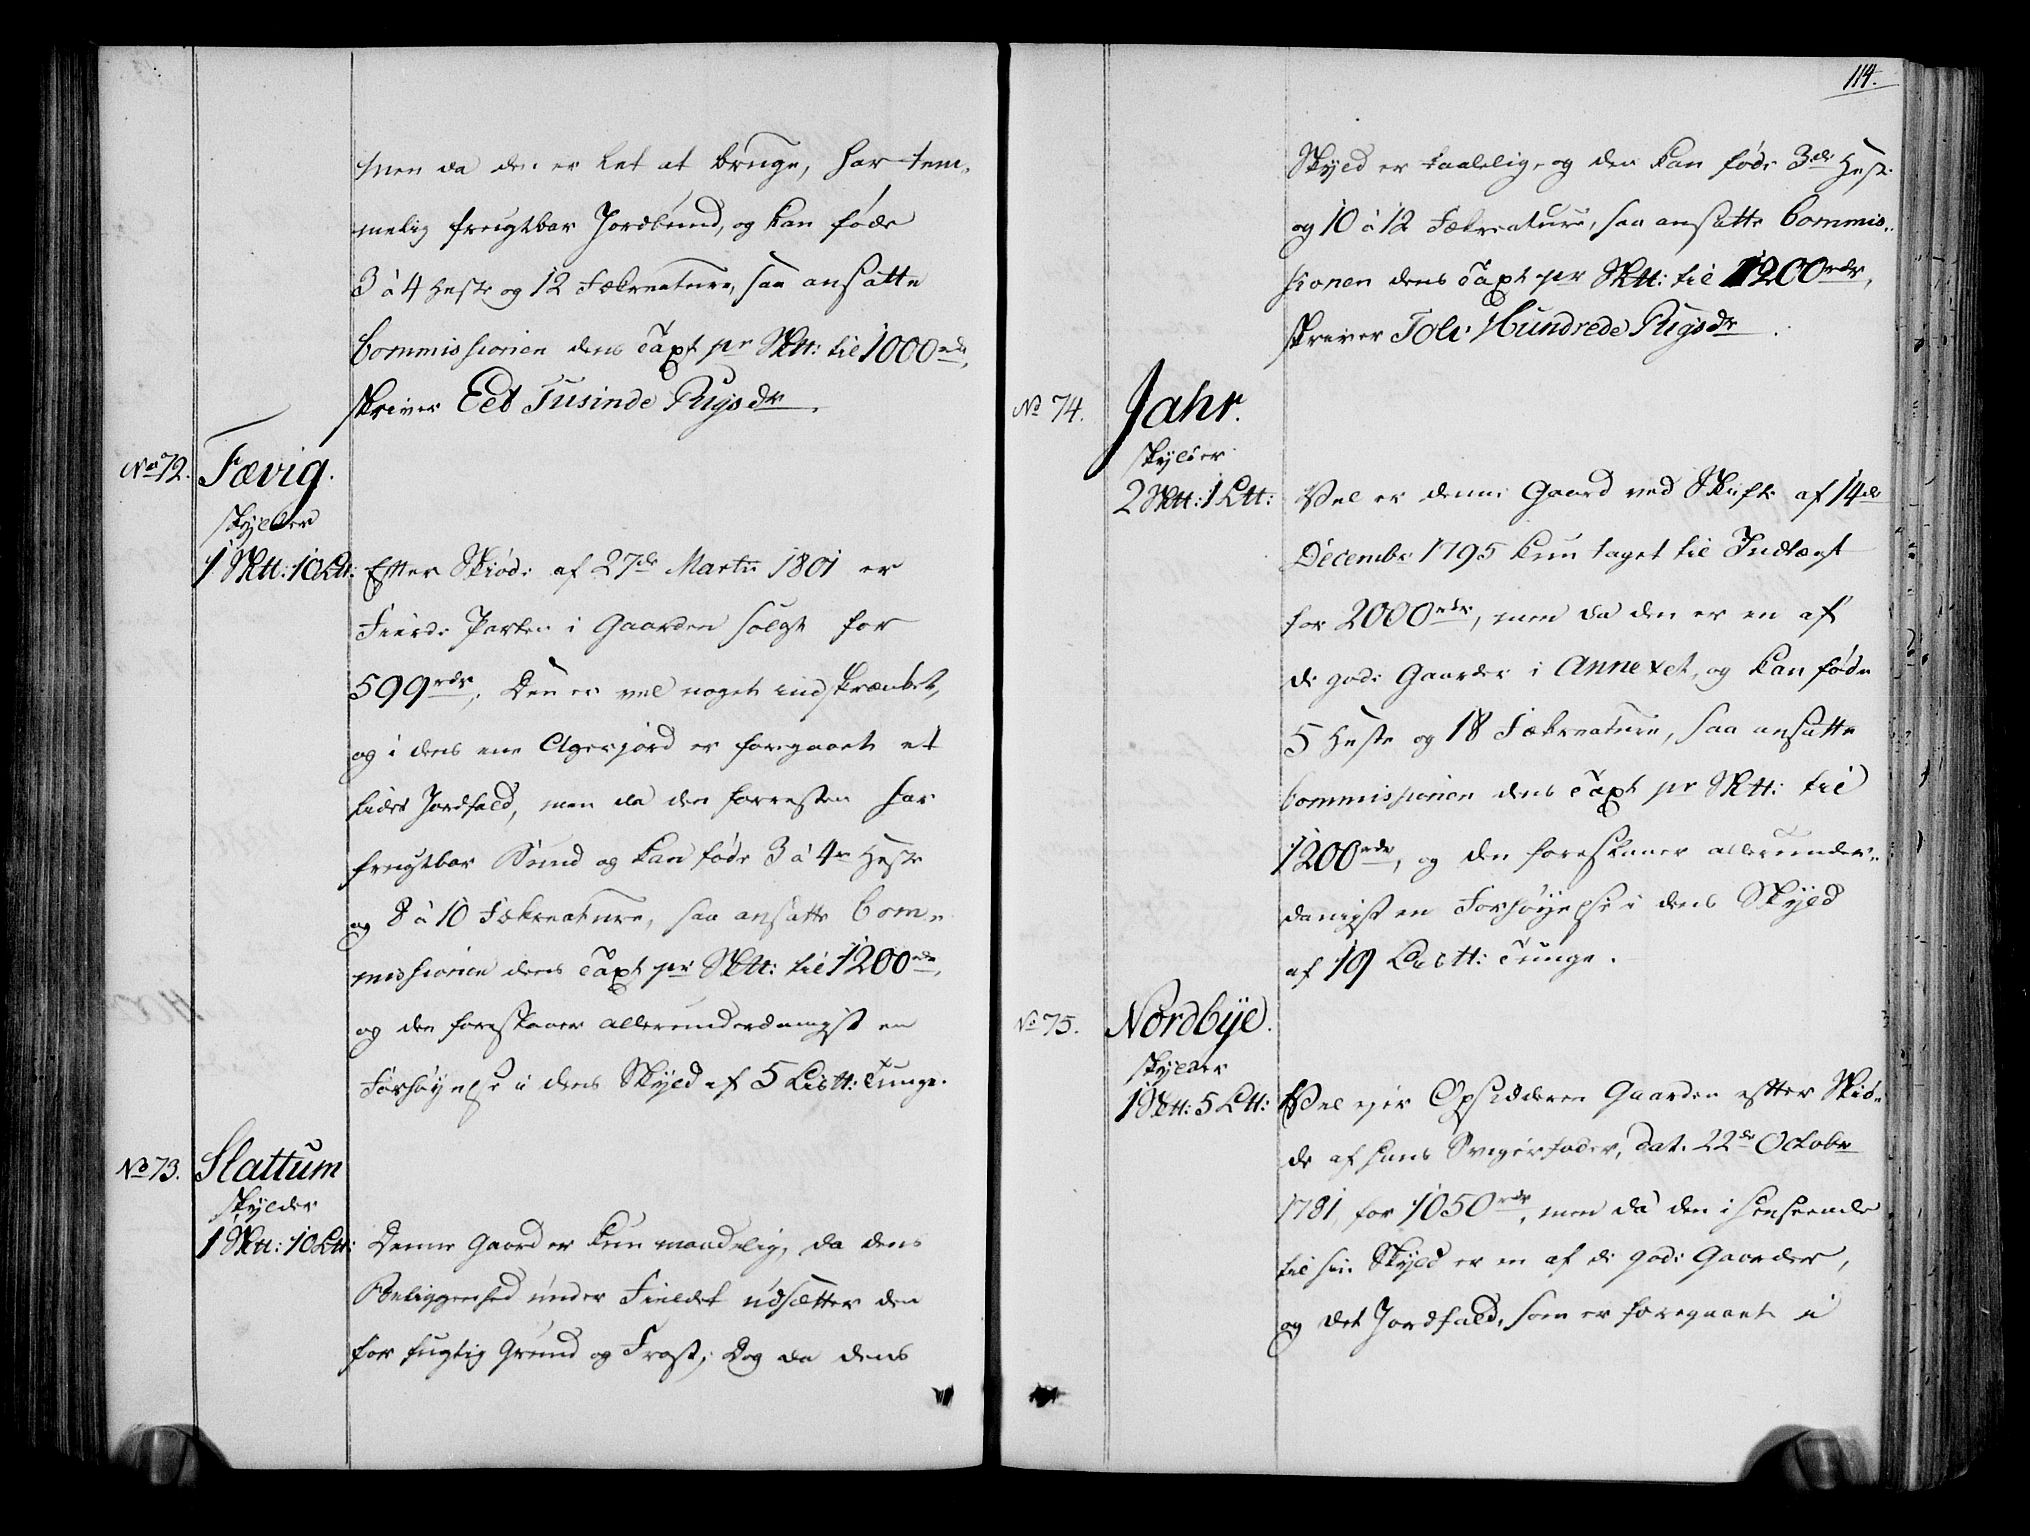 men da den er let at bruge, har tem„
melig frugtbar Jordbund, og kan føde
3 à 4 Heste og 12 Fækreature, saa ansatte
Commissionen dens Taxt pr Sktt: til 1000rdr,
skriver Eet Tusinde Rigsdr.
No 72. Fævig.
skylder
1 Sktt: 10 Ltt: Efter Skiøde af 27de Martii 1801 er
Fierde Parten i Gaarden solgt for
599rdr. Den er vel noget indskrænket,
og i dens ene Agerjord er foregaaet et
lidet Jordfald, men da den forresten har
frugtbar Bund og kan føde 3 à 4re Heste
og 8 à 10 Fækreature, saa ansatte Com„
missionen dens Taxt pr Sktt: til 1200rdr,
og den foreslaaer allerunderdanigst en
Forhøyelse i dens Skyld af 5 Listt: Tunge.
No 73. Slattum
skylder
1 Sktt: 10 Ltt: Denne Gaard er kun maadelig, da dens
Beliggenhed under Fieldet udsætter den
for fugtig Grund og Frost; Dog da dens
114.
Skyld er taalelig, og den kan føde 3de Heste
og 10 à 12 Fækreature, saa ansatte Commis„
sionen dens Taxt pr Sktt: til 1200rdr,
skriver Tolv Hundrede Rigsdr.
No 74. Jahr.
skylder
2 Sktt: 1 Ltt: Vel er denne Gaard ved Skifte af 14de
Decembr 1795 kun taget til Indtægt
for 2000rdr, men da den er en af
de gode Gaarder i Annexet, og kan føde
5 Heste og 18 Fækreature, saa ansatte
Commissionen dens Taxt pr Sktt: til
1200rdr, og den foreslaaer allerunder„
danigst en Forhøyelse i dens Skyld
af 19 Listt: Tunge.
No 75. Nordbye.
skylder
1 Sktt: 5 Ltt: Vel ejer Opsidderen Gaarden efter Skiø„
de af hans Svigerfader, dat. 22de Octobr
1781, for 1050rdr, men da den i Henseende
til sin Skyld er en af de gode Gaarder,
og det Jordfald, som er foregaaet i